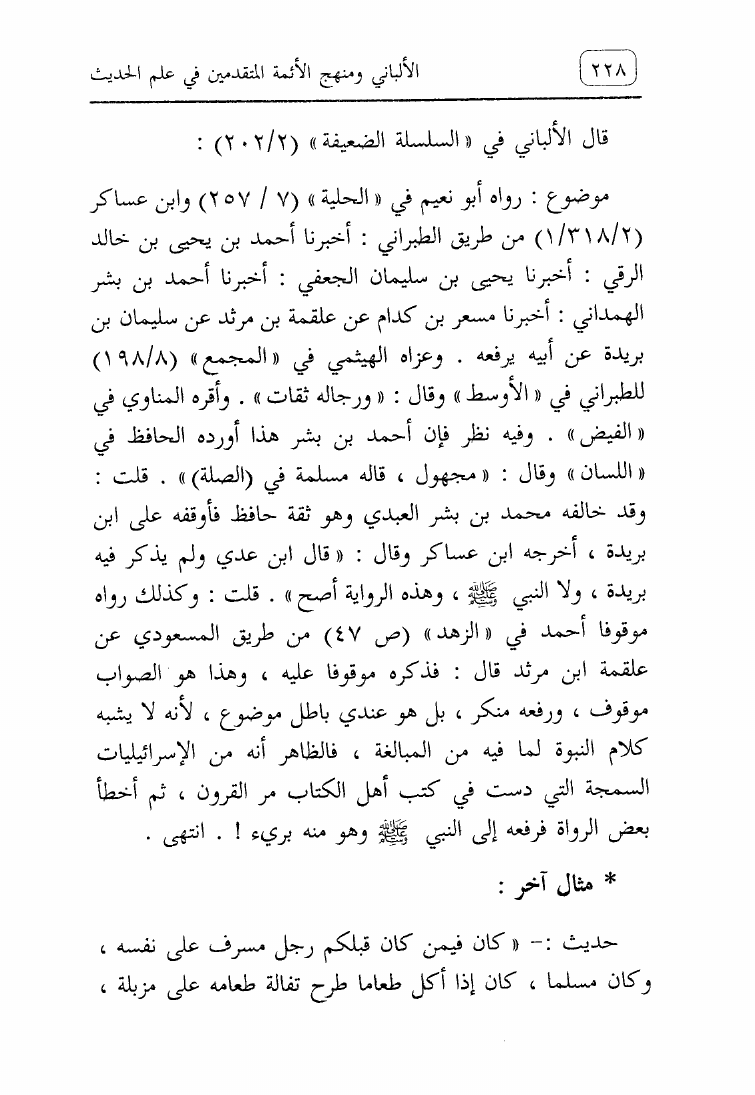 ٢٢٨
الألباني ومنهج الأئمة المتقدمين في علم الحديث
قال الألباني في « السلسلة الضعيفة » (٢٠٢/٢) :
موضوع : رواه أبو نعيم في « الحلية » (٧ / ٢٥٧) وابن عساكر
(١/٣١٨/٢) من طريق الطبراني : أخبرنا أحمد بن يحيى بن خالد
الرقي : أخبرنا يحيى بن سليمان الجعفي : أخبرنا أحمد بن بشر
الهمداني : أخبرنا مسعر بن كدام عن علقمة بن مرثد عن سليمان بن
بريدة عن أبيه يرفعه . وعزاه الهيثمي في « المجمع » (١٩٨/٨)
للطبراني في « الأوسط » وقال : « ورجاله ثقات » . وأقره المناوي في
« الفيض » . وفيه نظر فإن أحمد بن بشر هذا أورده الحافظ في
« اللسان » وقال : « مجهول ، قاله مسلمة في (الصلة) » . قلت :
وقد خالفه محمد بن بشر العبدي وهو ثقة حافظ فأوقفه على ابن
بريدة ، أخرجه ابن عساكر وقال : « قال ابن عدي ولم يذكر فيه
بريدة ، ولا النبي ﷺ ، وهذه الرواية أصح » . قلت : وكذلك رواه
موقوفا أحمد في « الزهد » (ص ٤٧) من طريق المسعودي عن
علقمة ابن مرثد قال : فذكره موقوفا عليه ، وهذا هو الصواب
موقوف ، ورفعه منكر ، بل هو عندي باطل موضوع ، لأنه لا يشبه
كلام النبوة لما فيه من المبالغة ، فالظاهر أنه من الإسرائيليات
السمجة التي دست في كتب أهل الكتاب مر القرون ، ثم أخطأ
بعض الرواة فرفعه إلى النبي ﷺ وهو منه بريء ! . انتهى .
* مثال آخر :
حديث :– « كان فيمن كان قبلكم رجل مسرف على نفسه ،
وكان مسلما ، كان إذا أكل طعاما طرح تفالة طعامه على مزبلة ،